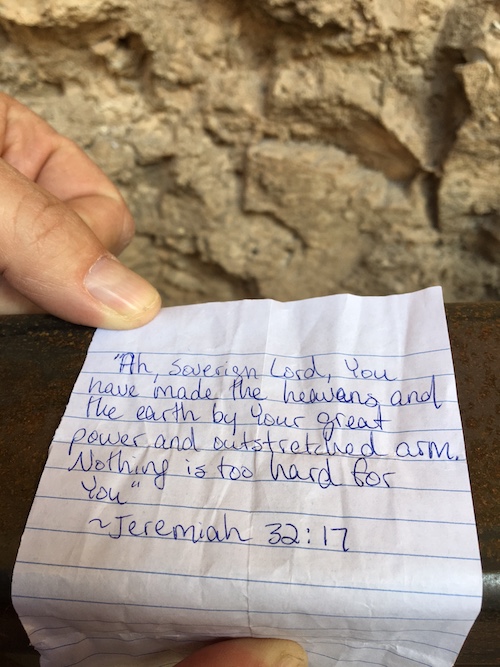 "Ah, Soverign Lord, You
have made the heavens and
the earth by Your great
power and outstretched arm.
Nothing is too hard for
You"
~Jeremiah 32:17